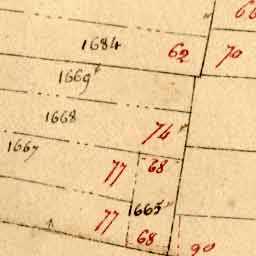 66
1684 62 70
1669
1668 74
1667 77 68
77 1665
68 90